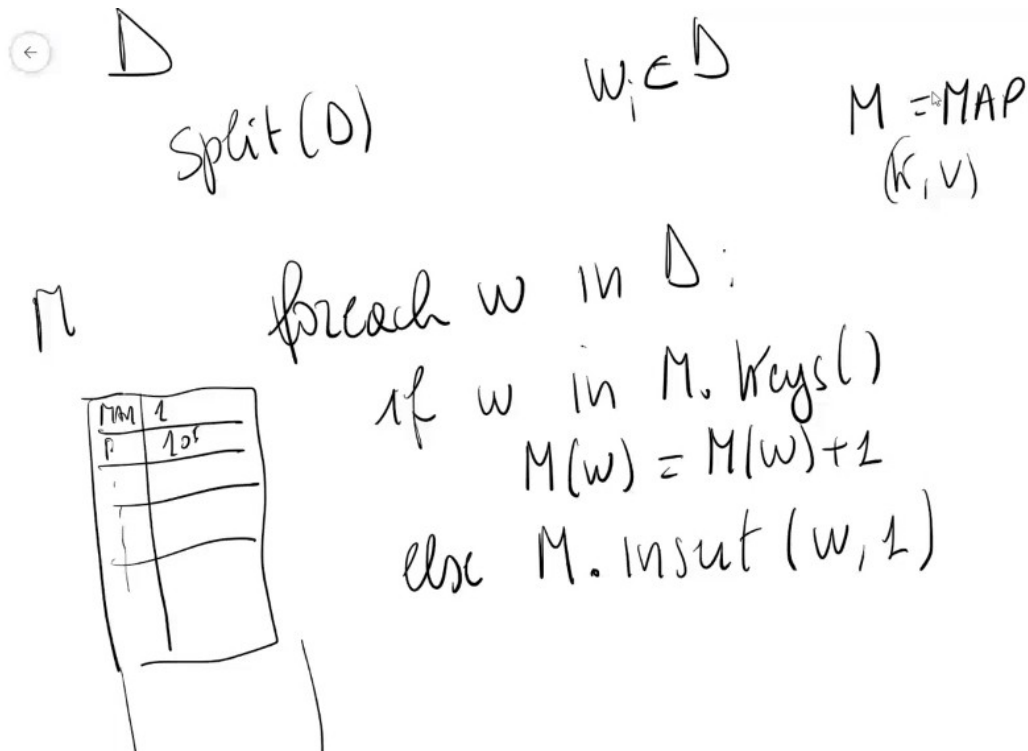 D
split(D)
wᵢ ∈ D
M = MAP
(K, V)
M
foreach w in D:
if w in M.keys()
M(w) = M(w)+1
else M.insert(w, 1)
1
P